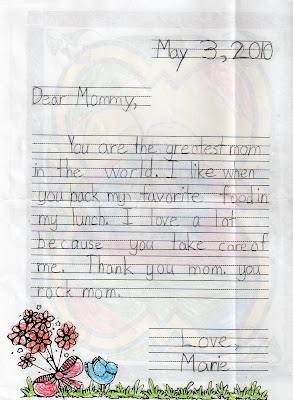 May 3, 2010
Dear Mommy,
You are the greatest mom
in the world. I like when
you pack my favorite food in
my lunch. I love a lot
because you take care of
me. Thank you mom. you
rock mom.
Love,
Marie